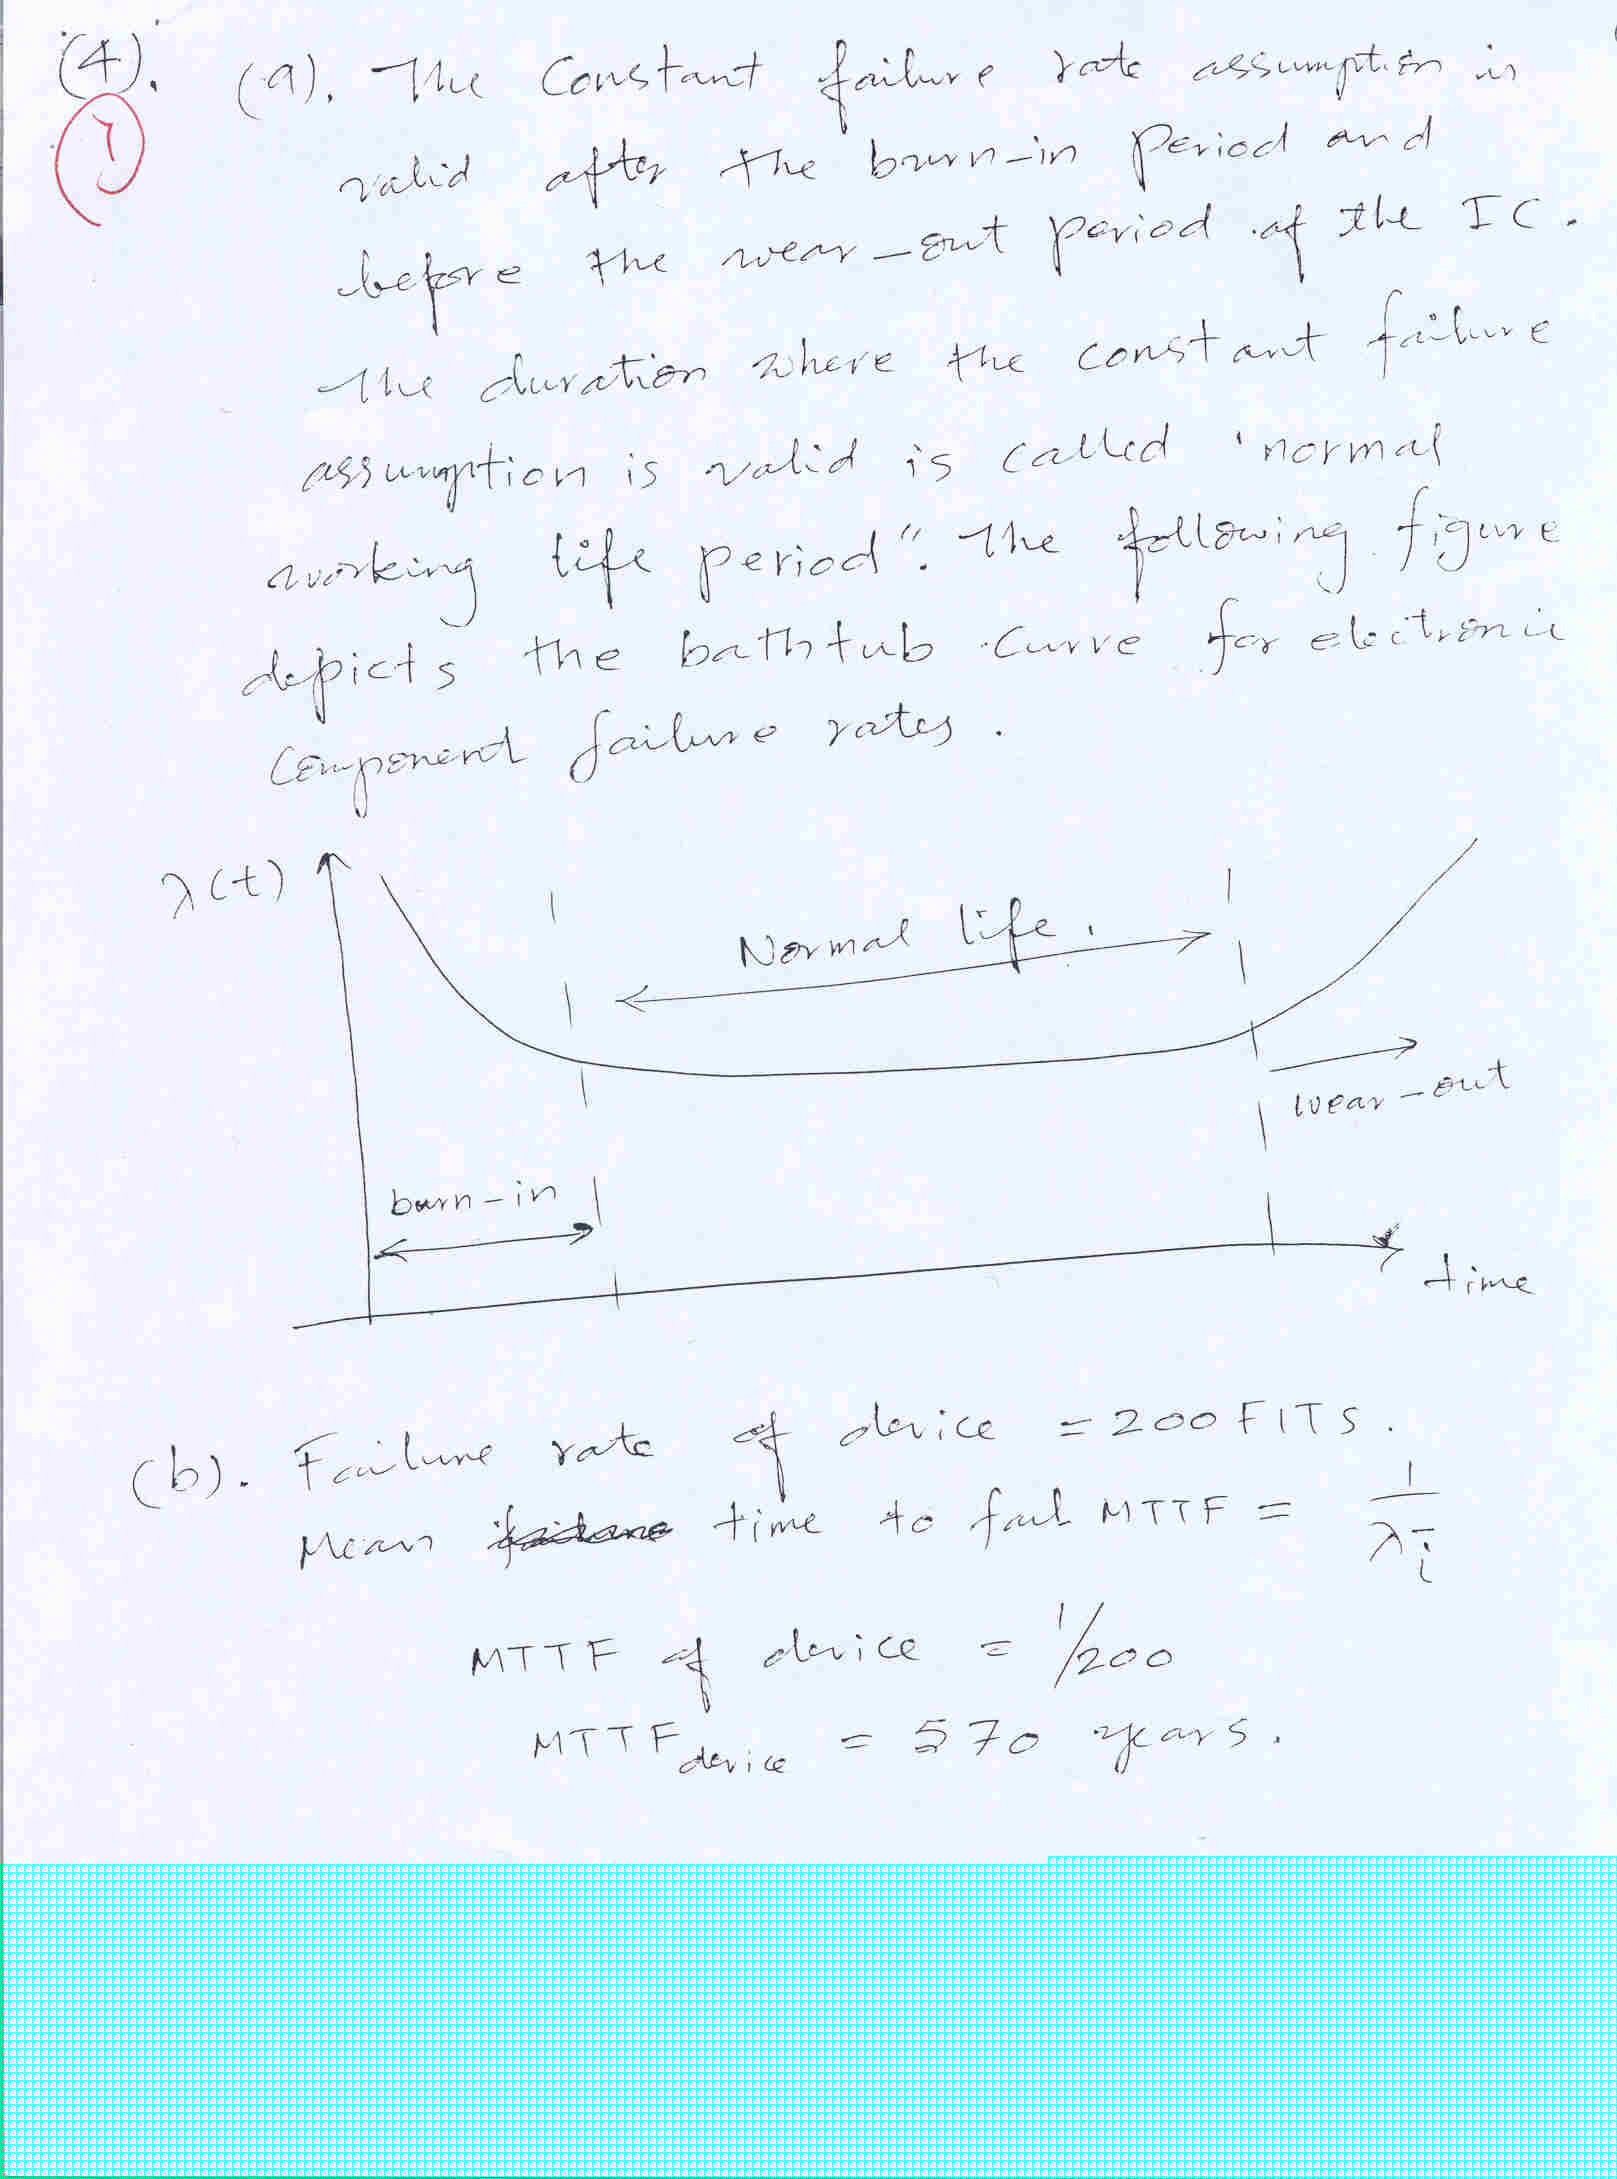 (4).
(a). The Constant failure rate assumption is
valid after the burn-in period and
before the wear-out period of the IC.
The duration where the constant failure
assumption is valid is called 'normal
working life period". The following figure
depicts the bathtub curve for electronic
Component failure rates.
λ(t)
Normal life.
wear-out
burn-in
time
(b). Failure rate of device = 200 FITS.
Mean time to fail MTTF = 1/λi
MTTF of device = 1/200
MTTF device = 570 years.